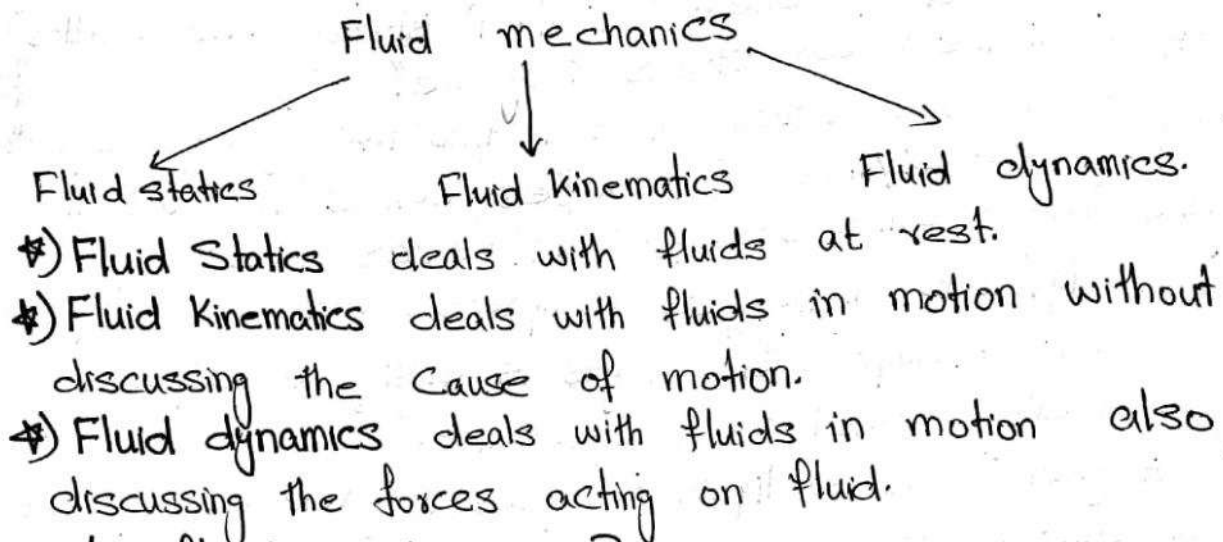 Fluid mechanics
Fluid statics Fluid Kinematics Fluid dynamics.
*) Fluid Statics deals with fluids at rest.
*) Fluid Kinematics deals with fluids in motion without
discussing the Cause of motion.
*) Fluid dynamics deals with fluids in motion also
discussing the forces acting on fluid.